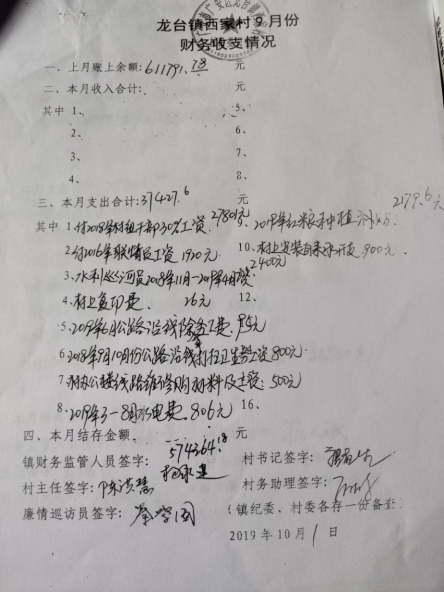 龙台镇西家村9月份
财务收支情况
一、上月账上余额:611791.78 元
二、本月收入合计: 元
其中 1、 5、
2、 6、
3、 7、
4、 8、
三、本月支出合计:37427.6 元
2179.6元
其中 1.付2018年村组干部30%工资,27801元 9、2019年红粮种植
2.付2016年联防员工资1920元 10.村上安装自来水开支900元
3.水利巡河员2018年11月-2019年4月资 2400元
4.村上复印费、 26元 12、
5.2019年6月公路沿线除草工费
6.2018年9月10月份公路沿线打扫卫生劳工资800元
7.村办公楼线路维修购材料及工资:500元
8.2019年3-8月水电费、806元 16、
四、本月结存金额、 574364.18元
镇财务监管人员签字: 村书记签字:
村主任签字: 村务助理签字:
廉情巡访员签字:
(镇纪委、村委各存一份备查)
2019年10月1日